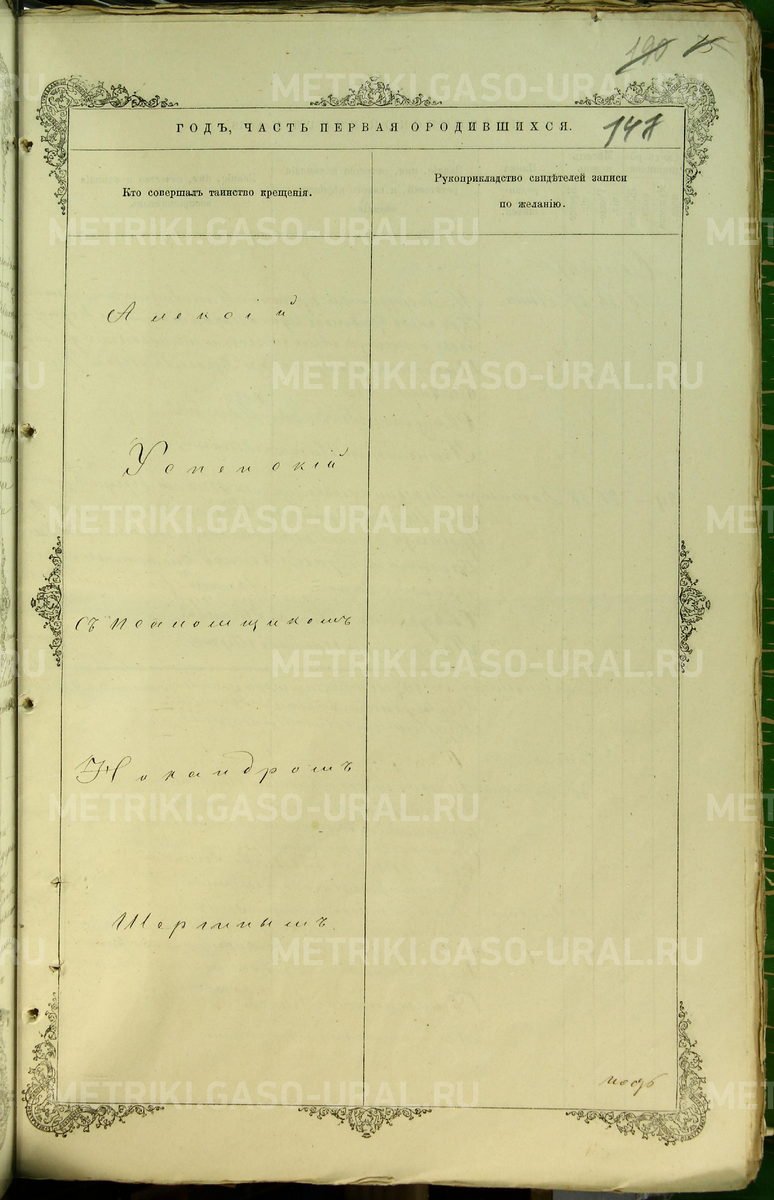 190 75
ГОДЪ, ЧАСТЬ ПЕРВАЯ О РОДИВШИХСЯ.
148
Кто совершалъ таинство крещенія.
Рукоприкладство свидѣтелей записи
по желанію.
Алексій
Успенскій
съ псаломщикомъ
Никандромъ
Шергинымъ
METRIKI.GASO-URAL.RU